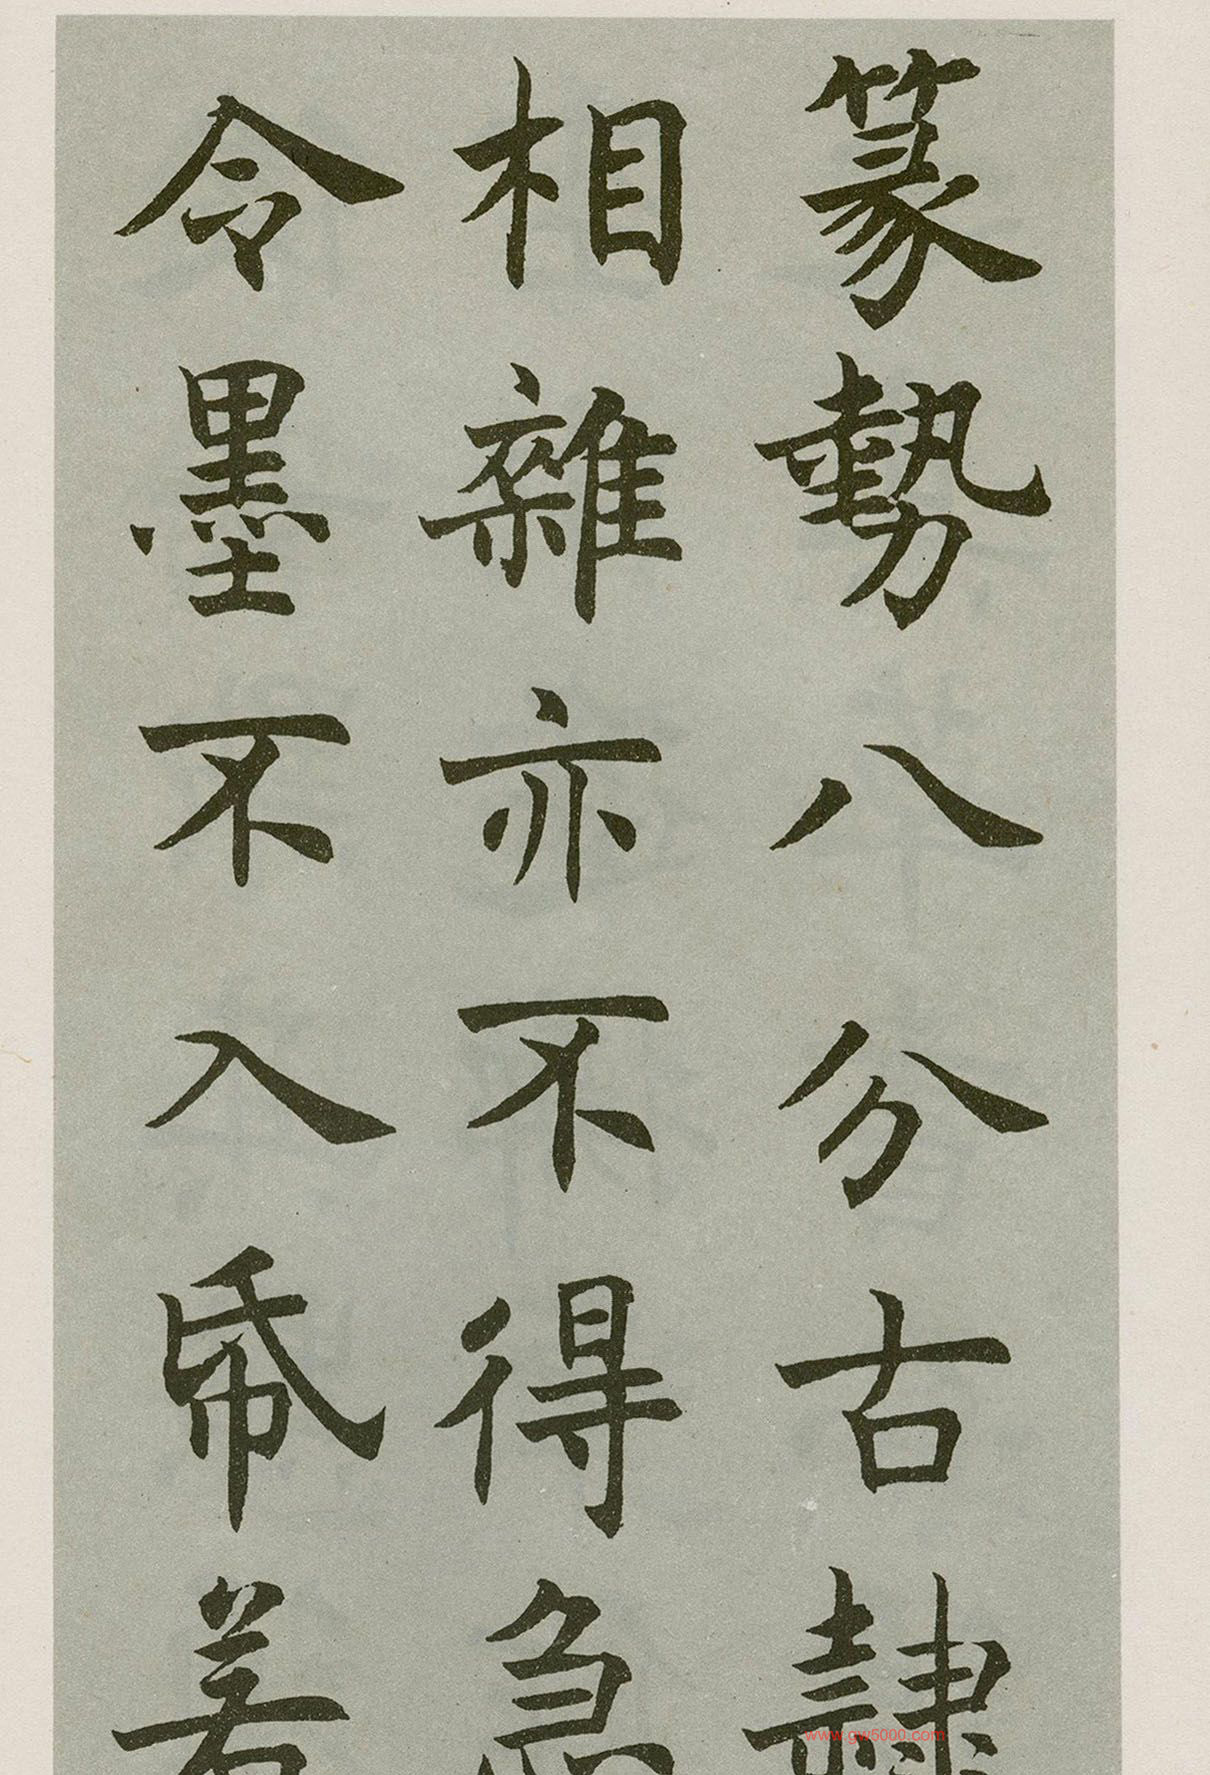 篆勢八分古隸
相雜亦不得急
令墨不入帋若
www.gw6000.com